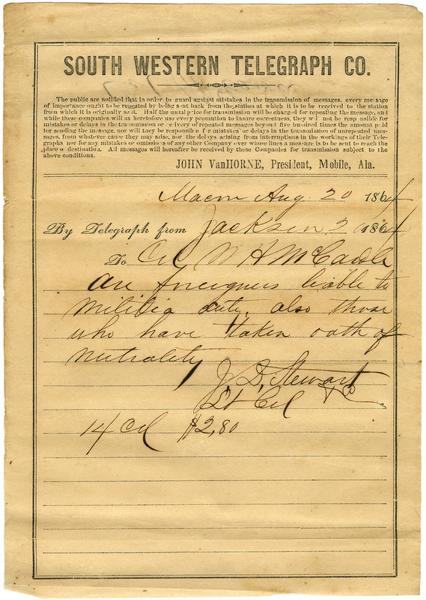 SOUTH WESTERN TELEGRAPH CO.
The public are notified that in order to guard against mistakes in the transmission of messages, every message
of importance ought to be repeated by being sent back from the station at which it is to be received to the station
from which it is originally sent. Half the usual price for transmission will be charged for repeating the message, and
while these companies will as heretofore use every precaution to insure correctness, they will not be responsible for
mistakes or delays in the transmission or delivery of repeated messages beyond five hundred times the amount paid
for sending the message, nor will they be responsible for mistakes or delays in the transmission of unrepeated messages,
from whatever cause they may arise, nor for delays arising from interruptions in the workings of their Telegraphs
nor for any mistakes or omissions of any other Company over whose lines a message is to be sent to reach the
place of destination. All messages will hereafter be received by these Companies for transmission subject to the
above conditions.
JOHN VanHORNE, President, Mobile, Ala.
Macon Aug. 20 1864
By Telegraph from Jackson 2 1864
To Col W H McCardle
Are foreigners liable to
militia duty, also those
who have taken oath of
neutrality
J. D. Stewart
Lt Col
14 Col $2,80